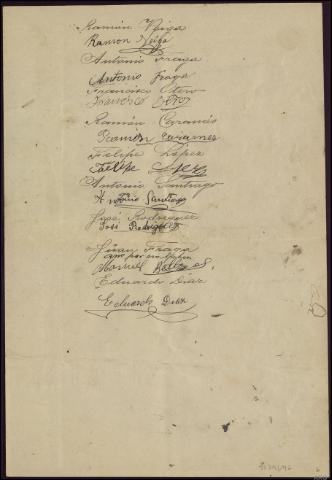 Ramón Veiga
Ramon Veiga
Antonio Fraga
Antonio Fraga
Francisco Otero
Francisco Otero
Ramón Caramés
Ramón Caramés
Felipe López
Faelipe Lopez
Antonio Santiago
Antonio Santiago
José Rodríguez
José Rodriguez
Juan Fraga
Manuel
Eduardo Díaz
Eduardo Diaz